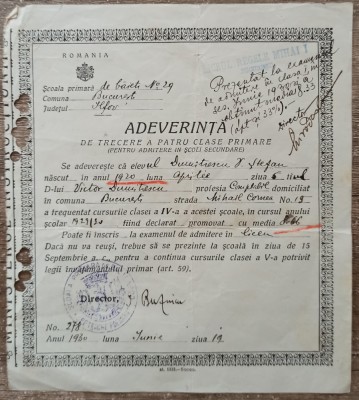 ROMANIA
Școala primară de băieți No. 29
Comuna București
Județul Ilfov
Prezentat la examenul
de admitere în clasa I, în
ses. Iunie 1930, și a
obținut media 8.33
(opt și 33%).
Director,
ADEVERINȚĂ
DE TRECERE A PATRU CLASE PRIMARE
(PENTRU ADMITERE IN ȘCOLI SECUNDARE)
Se adeverește că elevul Dumitrescu V Ștefan
născut în anul 1920 luna Aprilie ziua 5
D-lui Victor Dumitrescu profesia Contabil domiciliat
în comuna București strada Mihail Cornea No. 13
a frequentat cursurile clasei a IV-a a acestei școale, în cursul anului
școlar 1929/30 fiind declarat promovat cu media
Poate fi inscris la examenul de admitere în liceu
Dacă nu va reuși, trebue să se prezinte la școală în ziua de 15
Septembrie a. c. pentru a continua cursurile clasei V-a potrivit
legii învățământului primar (art. 59).
Director,
No. 278
Anul 1930 luna Iunie ziua 19